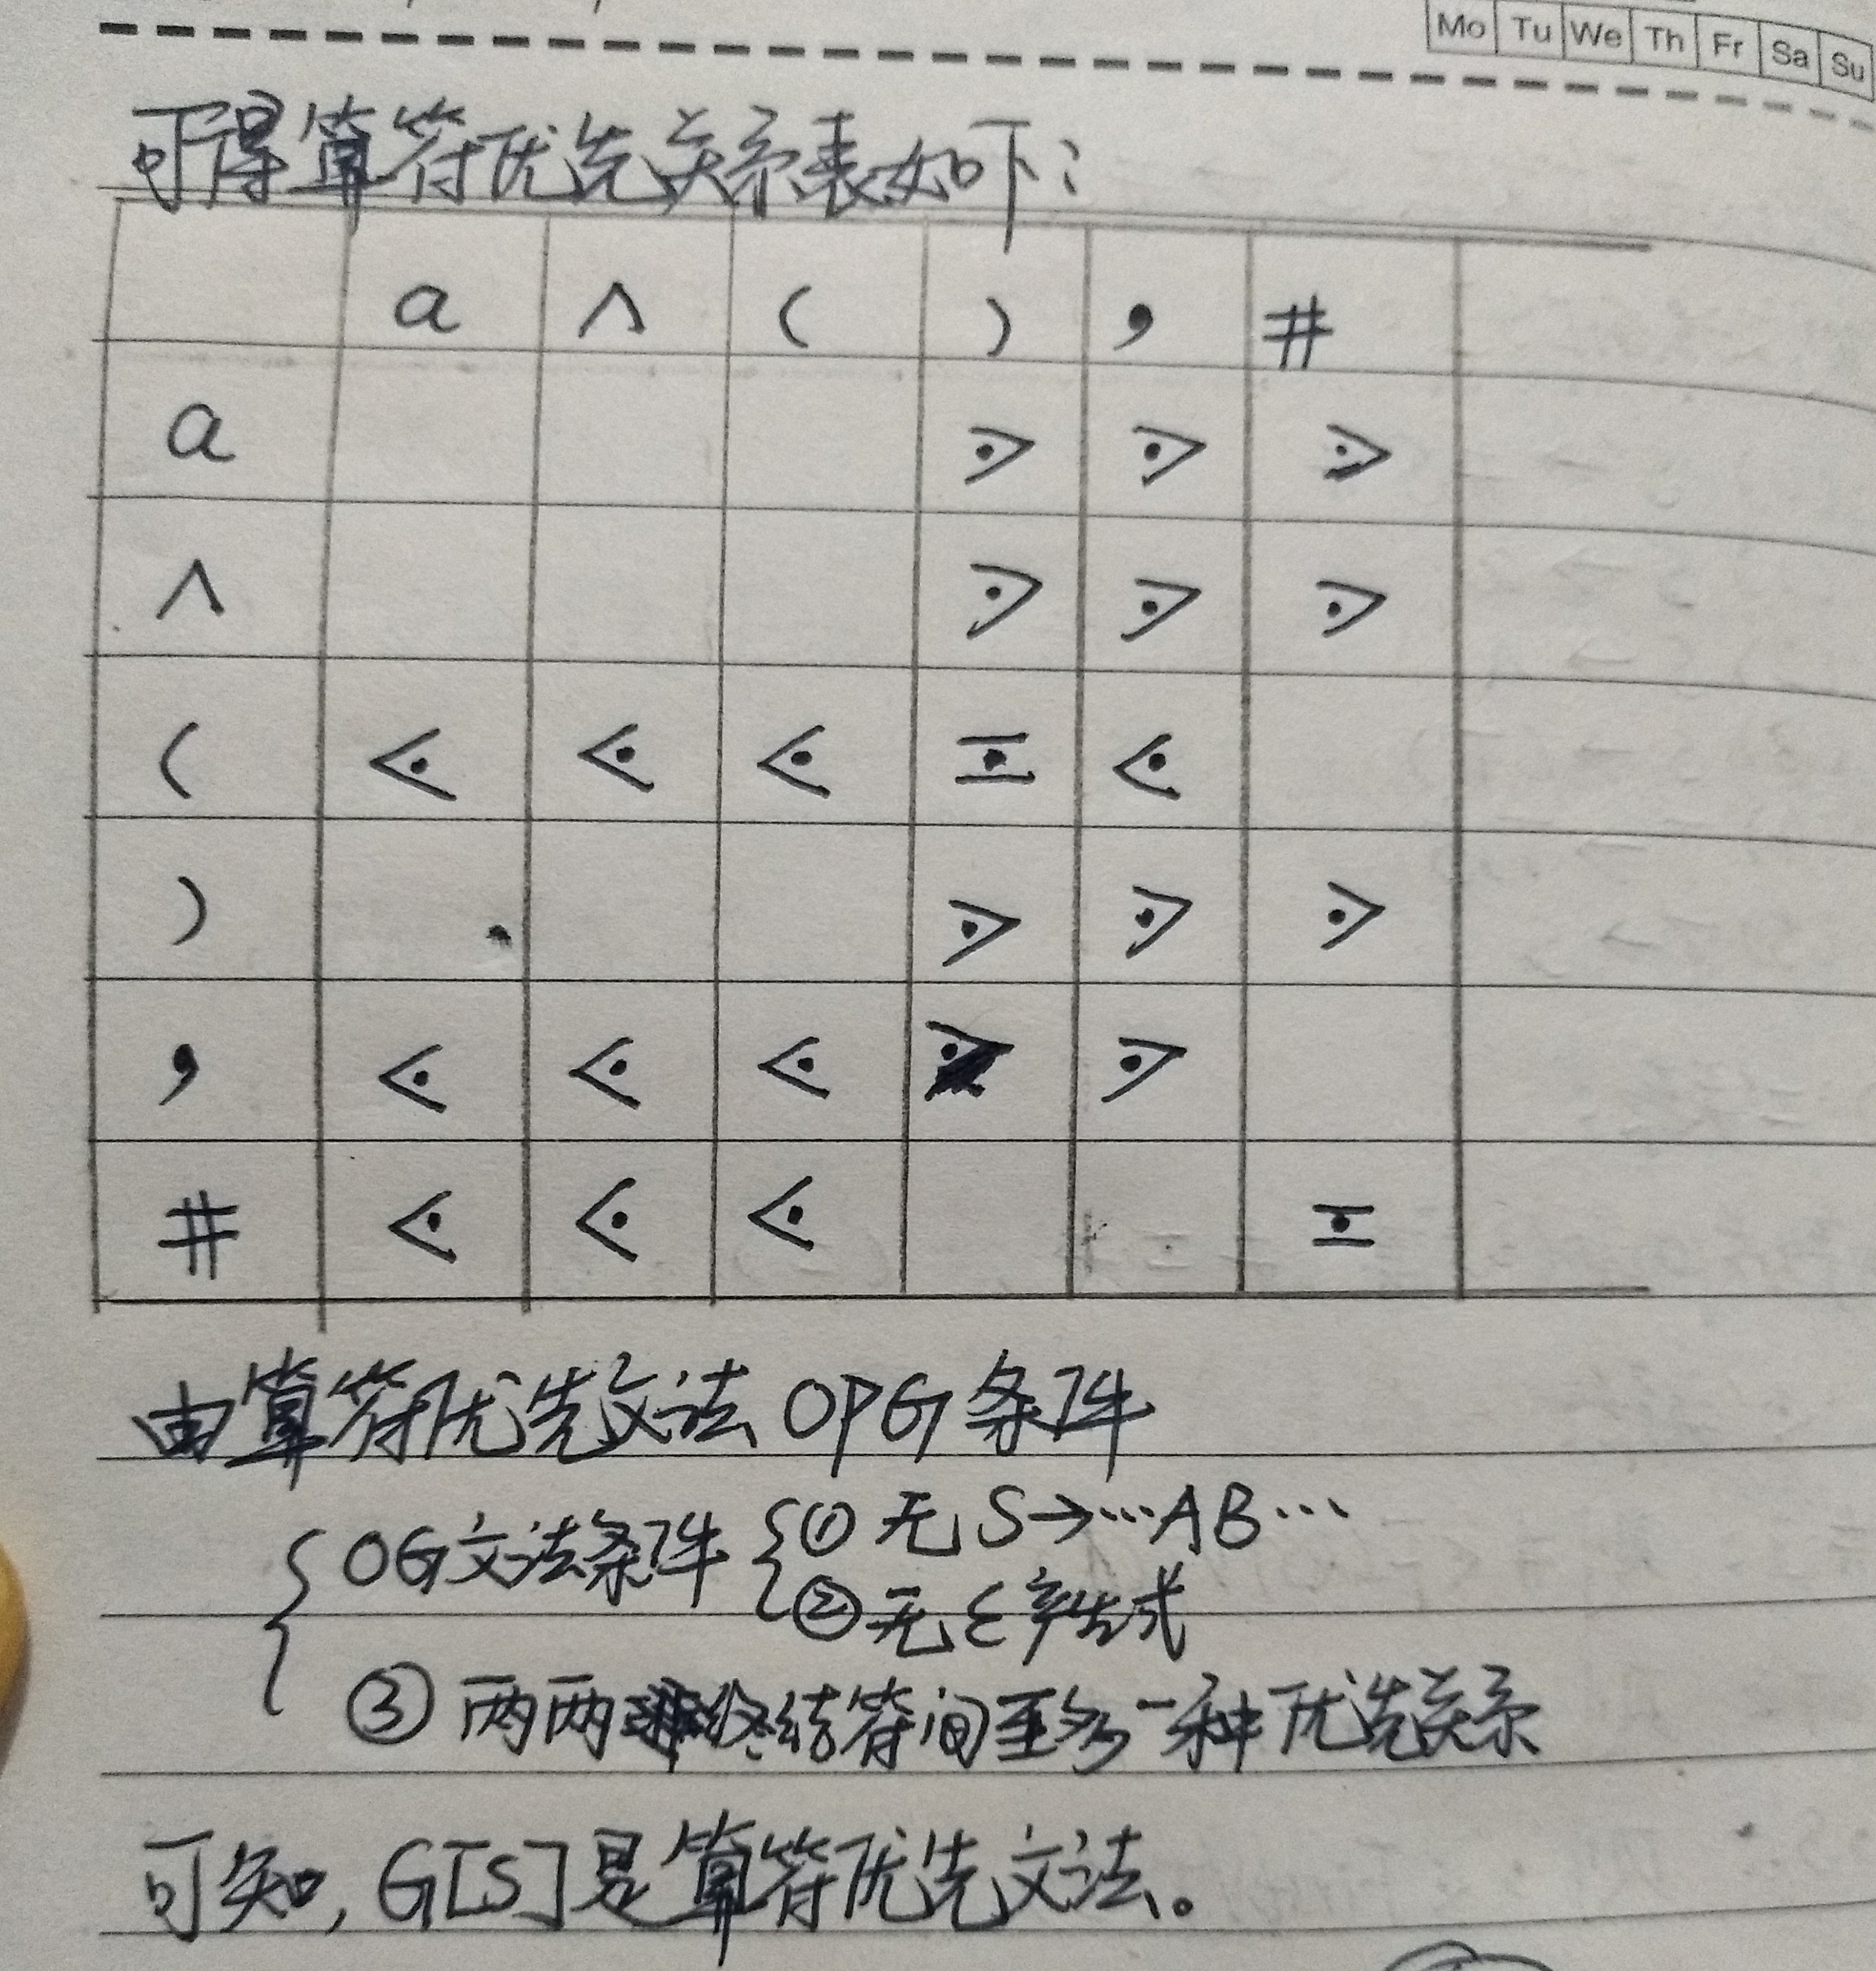 Mo Tu We Th Fr Sa Su
可得算符优先关系表如下:
a ∧ ( ) , #
a ⋗ ⋗ ⋗
∧ ⋗ ⋗ ⋗
( ⋖ ⋖ ⋖ ≐ ⋖
) ⋗ ⋗ ⋗
, ⋖ ⋖ ⋖ ⋗ ⋗
# ⋖ ⋖ ⋖ ≐
由算符优先文法OPG条件
{ OG文法条件 { ① 无 S→…AB…
② 无 ε产生式
③ 两两终结符间至多一种优先关系
可知, G[S]是算符优先文法。